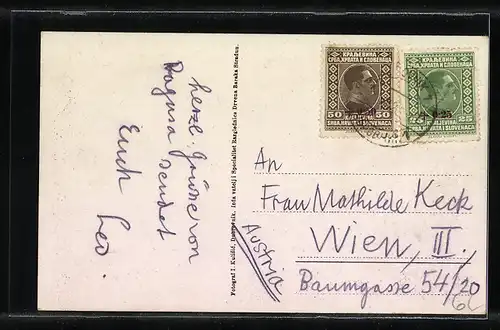 herzl. Grüsse von
Ragusa sendet
Euch Leo.
Fotograf I. Kulišić, Dubrovnik.
Specialitet Razglednice Drvena Barska Stradun.
КРАЉЕВИНА
СРБА, ХРВАТА И СЛОВЕНАЦА
50 50
KRALJEVINA
SRBA, HRVATA I SLOVENACA
КРАЉЕВИНА
СРБА, ХРВАТА И СЛОВЕНАЦА
0·25
25 25
KRALJEVINA
SRBA, HRVATA I SLOVENACA
An
Frau Mathilde Keck
Wien, III.
Baumgasse 54/20
Austria